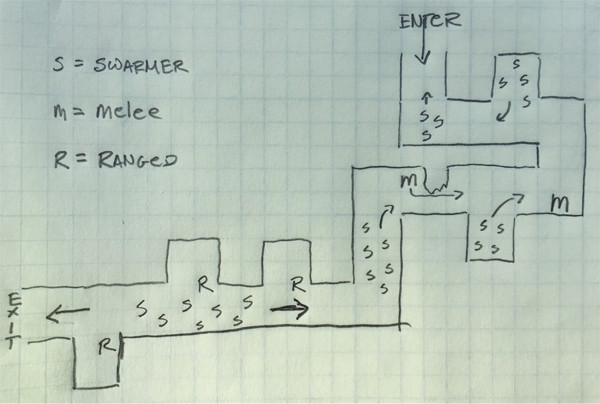 ENTER
S = SWARMER
m = melee
R = RANGED
S
S S
S
S
S S
S
m
m
S S
S S
S
S S
S S
S
S
R R
S S S S
S S S
R
EXIT